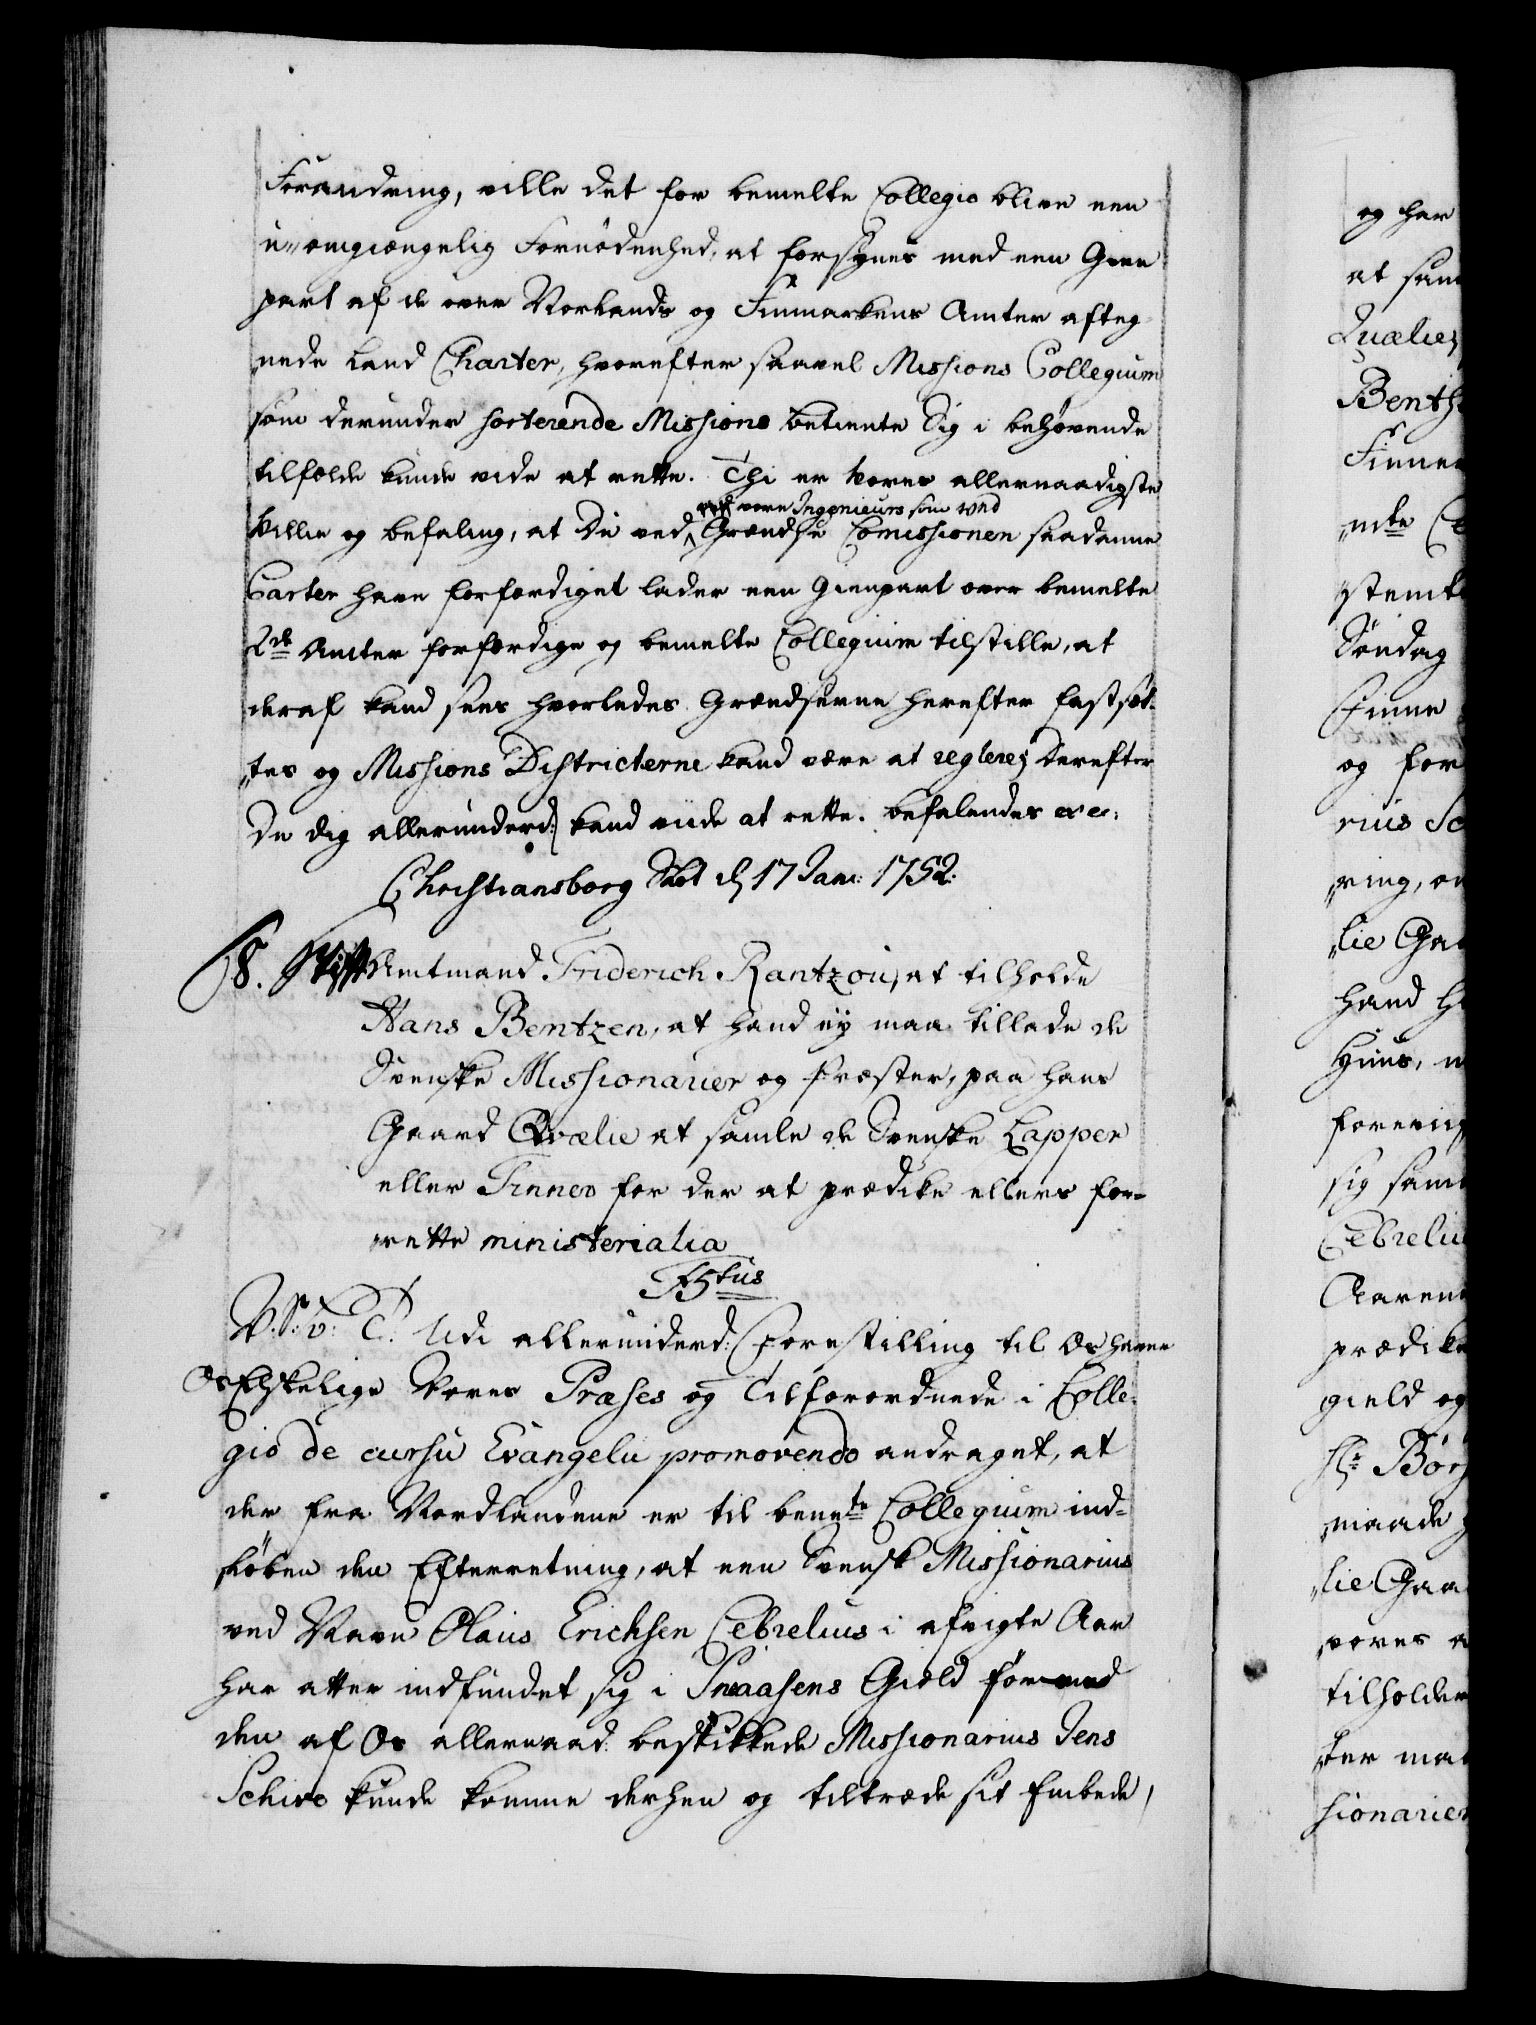 Forandring, ville det for bemelte Collegio blive een
u-omgiængelig Fornødenhed, at forsynes med een Gien
part af de over Norlands og Finmarkens Amter afteg
nede Land Charter, hvorefter saavel Missions Collegium
som derunder sorterende Missions betiente Sig i behøvende
tilfælde kunde vide at rette. Thi er Vores allernaadigste
vore Ingenieurs som ved
Villie og befaling, at Du ved Grændse Comissionen saadanne
Carter have forfærdiget lader een Gienpart over bemelte
2de Amter forfærdige og bemelte Collegium tilstille, at
deraf kand sees hvorledes Grændserne herefter fastsæt-
tes og Missions Districterne kand være at reglere; Derefter
Du dig allerunderd: kand viide at rette. befalendes etc:
Christiansborg Slot d 17 Jan: 1752.
8. StiftAmtmand Friderich Rantzou, at tilholde
Hans Bentzen, at hand ey maa tillade de
Svenske Missionarier og Præster, paa hans
Gaard Qvælie at samle de Svenske Lapper
eller Finner for der at prædike ellers for-
rette ministerialia
F5tus
V. S: v: T. Udi allerunderd: Forestilling til Os haver
Os Elskelige Vores Præses og Tilforordnede i Colle-
gio de cursu Evangelii promovendo andraget, at
der fra Nordlandene er til bem.te Collegium ind-
køben den Efterretning, at een Svensk Missionarius
ved Navn Olaus Erichsen Cebrelius i afvigte Aar
har atter indfundet sig i Snaasens Gield før end
den af Os allernaad: beskikkede Missionarius Jens
Schive kunde komme derhen og tiltræde sit Embede,
og har
at sam
Quælie,
Benth
Finner
mte Ce
stemt
Søndag
Finne
og for
rius Sc
ring, om
lie Gaa
hand h
Huus, m
foreviis
sig samt
Cebreliu
Aaren
prædike
gield og
Hr Børs
maade
lie Gaa
vores a
tilholder
ter maa
sionarier